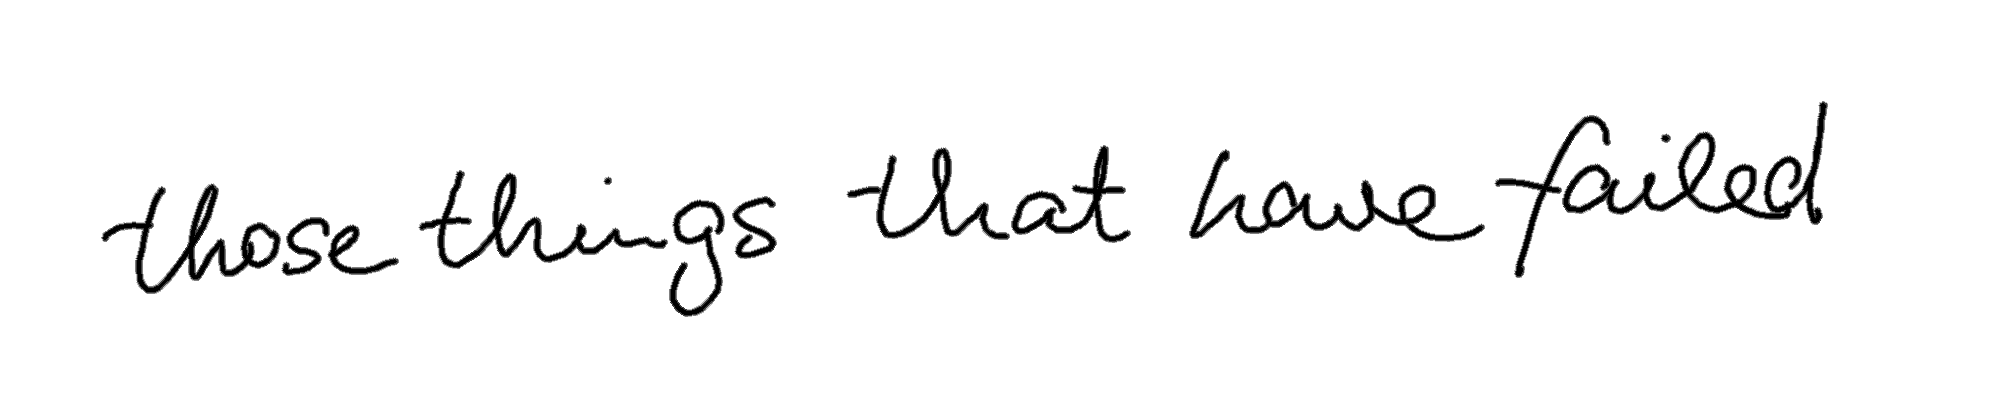 those things that have failed